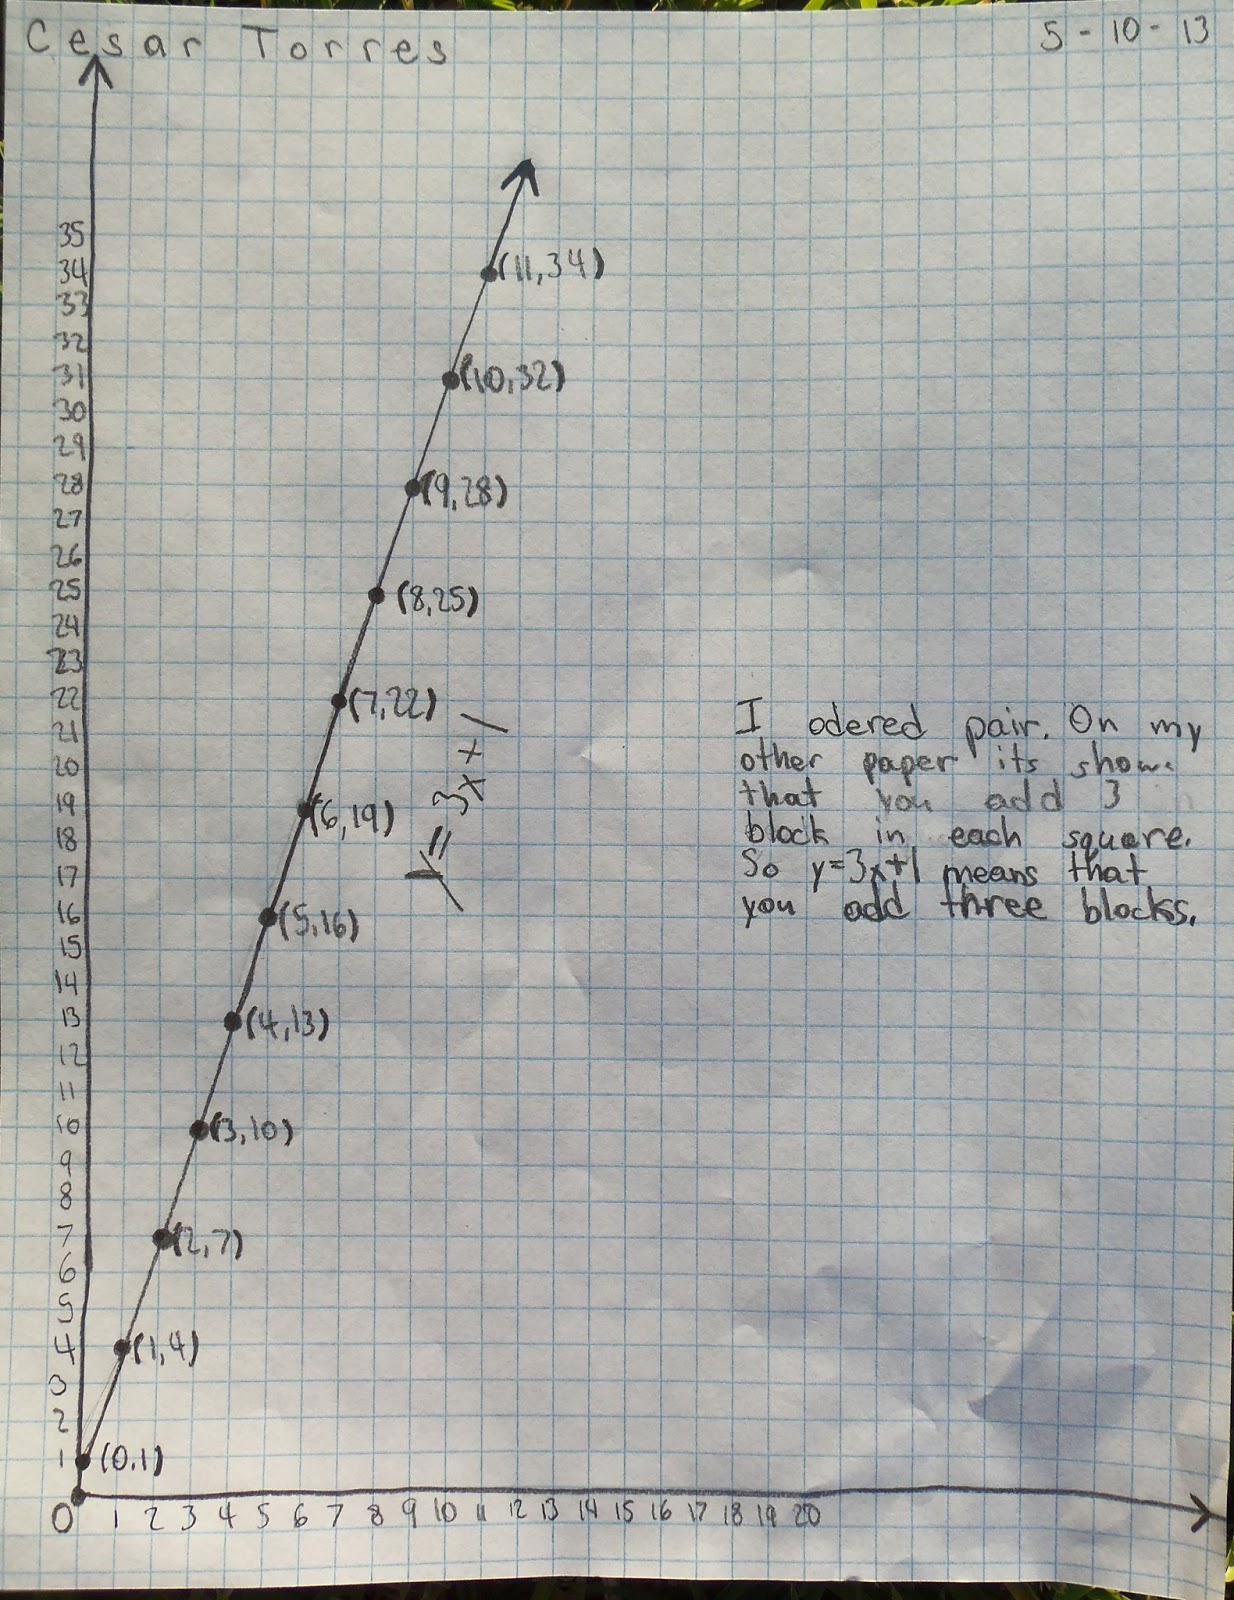 Cesar Torres 5-10-13
35
34 (11,34)
33
32
31 (10,32)
30
29
28 (9,28)
27
26
25 (8,25)
24
23
22 (7,22)
21
20
19 (6,19)
18
17
16 (5,16)
15
14
13 (4,13)
12
11
10 (3,10)
9
8
7 (2,7)
6
5
4 (1,4)
3
2
1 (0,1)
0 1 2 3 4 5 6 7 8 9 10 11 12 13 14 15 16 17 18 19 20
y=3x+1
I odered pair. On my
other paper its show
that you add 3
block in each square.
So y=3x+1 means that
you add three blocks.